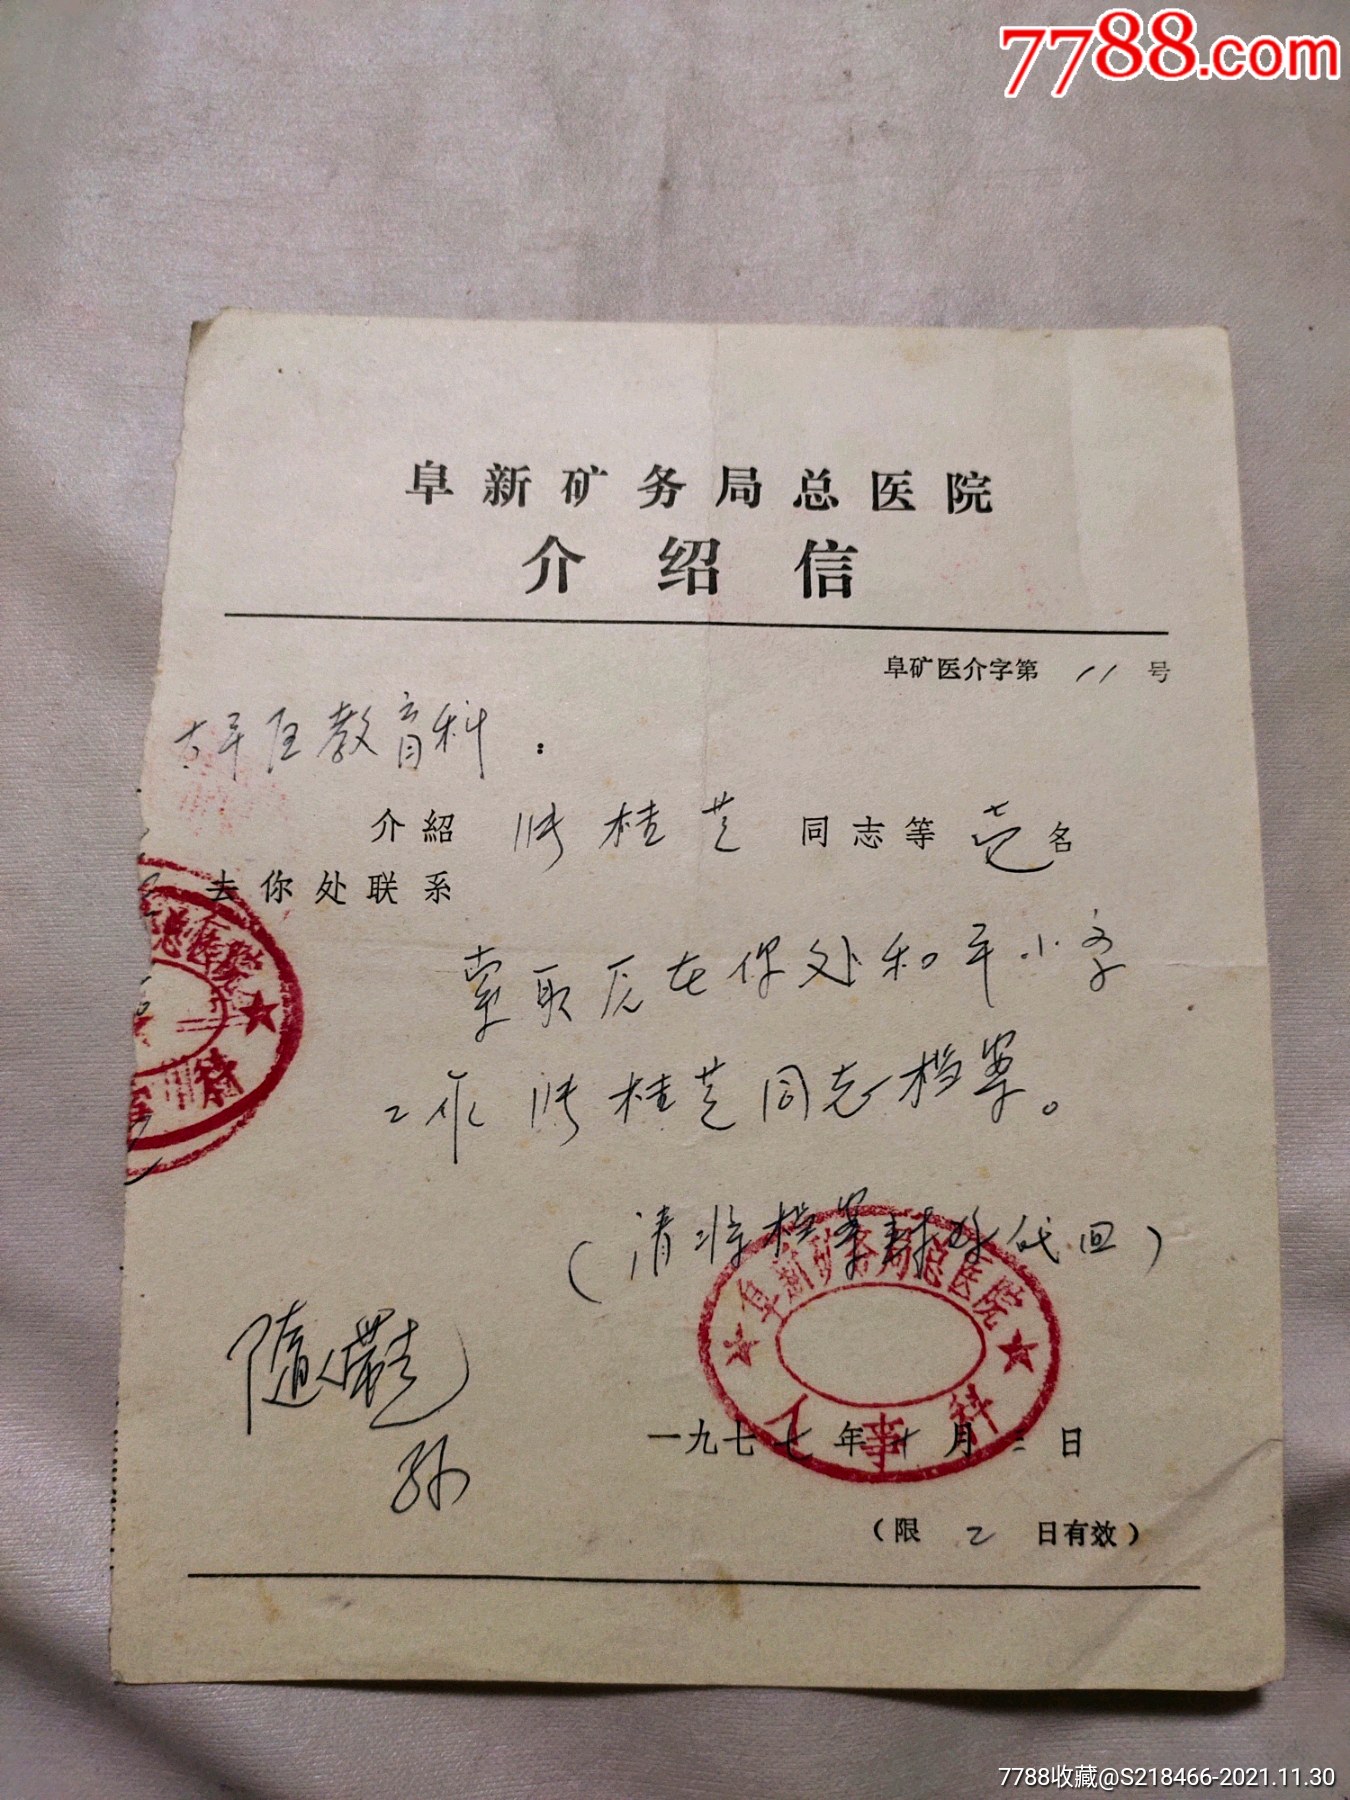 7788.com
阜新矿务局总医院
介绍信
阜矿医介字第 11 号
太平区教育科：
介紹 张桂芝 同志等 壱 名
去你处联系
索取厄在你处和平小学
工作张桂芝同志档案。
（请将档案封好代回）
阜新矿务局总医院
人事科
总医院
科
随
孙
一九七七年十月二日
（限 2 日有效）
7788收藏@S218466-2021.11.30